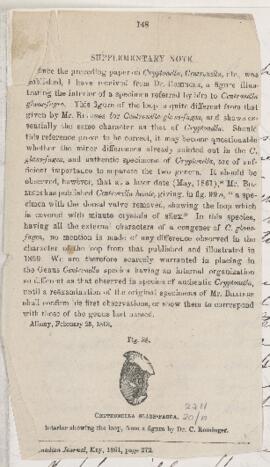 148
SUPPLEMENTARY NOTE.
Since the preceding paper on Cryptonella, Centronella, etc., was
published, I have received from Dr. ROMINGER, a figure illus-
trating the interior of a specimen referred by him to Centronella
glans-fagea. This figure of the loop is quite different from that
given by Mr. BILLINGS for Centronella glans-fagea, and shows es-
sentially the same character as that of Cryptonella. Should
this reference prove to be correct, it may become questionable
whether the minor differences already pointed out in the C.
glans-fagea, and authentic specimens of Cryptonella, are of suf-
ficient importance to separate the two genera. It should be
observed, however, that at a later date (May, 1861),* Mr. BIL-
LINGS has published Centronella hecate, giving, in fig. 89a, "a spe-
cimen with the dorsal valve removed, showing the loop which
is covered with minute crystals of silex." In this species,
having all the external characters of a congener of C. glans-
fagea, no mention is made of any difference observed in the
character of the loop from that published and illustrated in
1859. We are therefore scarcely warranted in placing in
the Genus Centronella species having an internal organization
so different as that observed in species of authentic Cryptonella,
until a reëxamination of the original specimens of Mr. BILLINGS
shall confirm his first observations, or show them to correspond
with those of the genus last named.
Albany, February 25, 1863.
Fig. 88.
CENTRONELLA GLANS-FAGEA.
Interior showing the loop, from a figure by Dr. C. Rominger.
Canadian Journal, May, 1861, page 272.